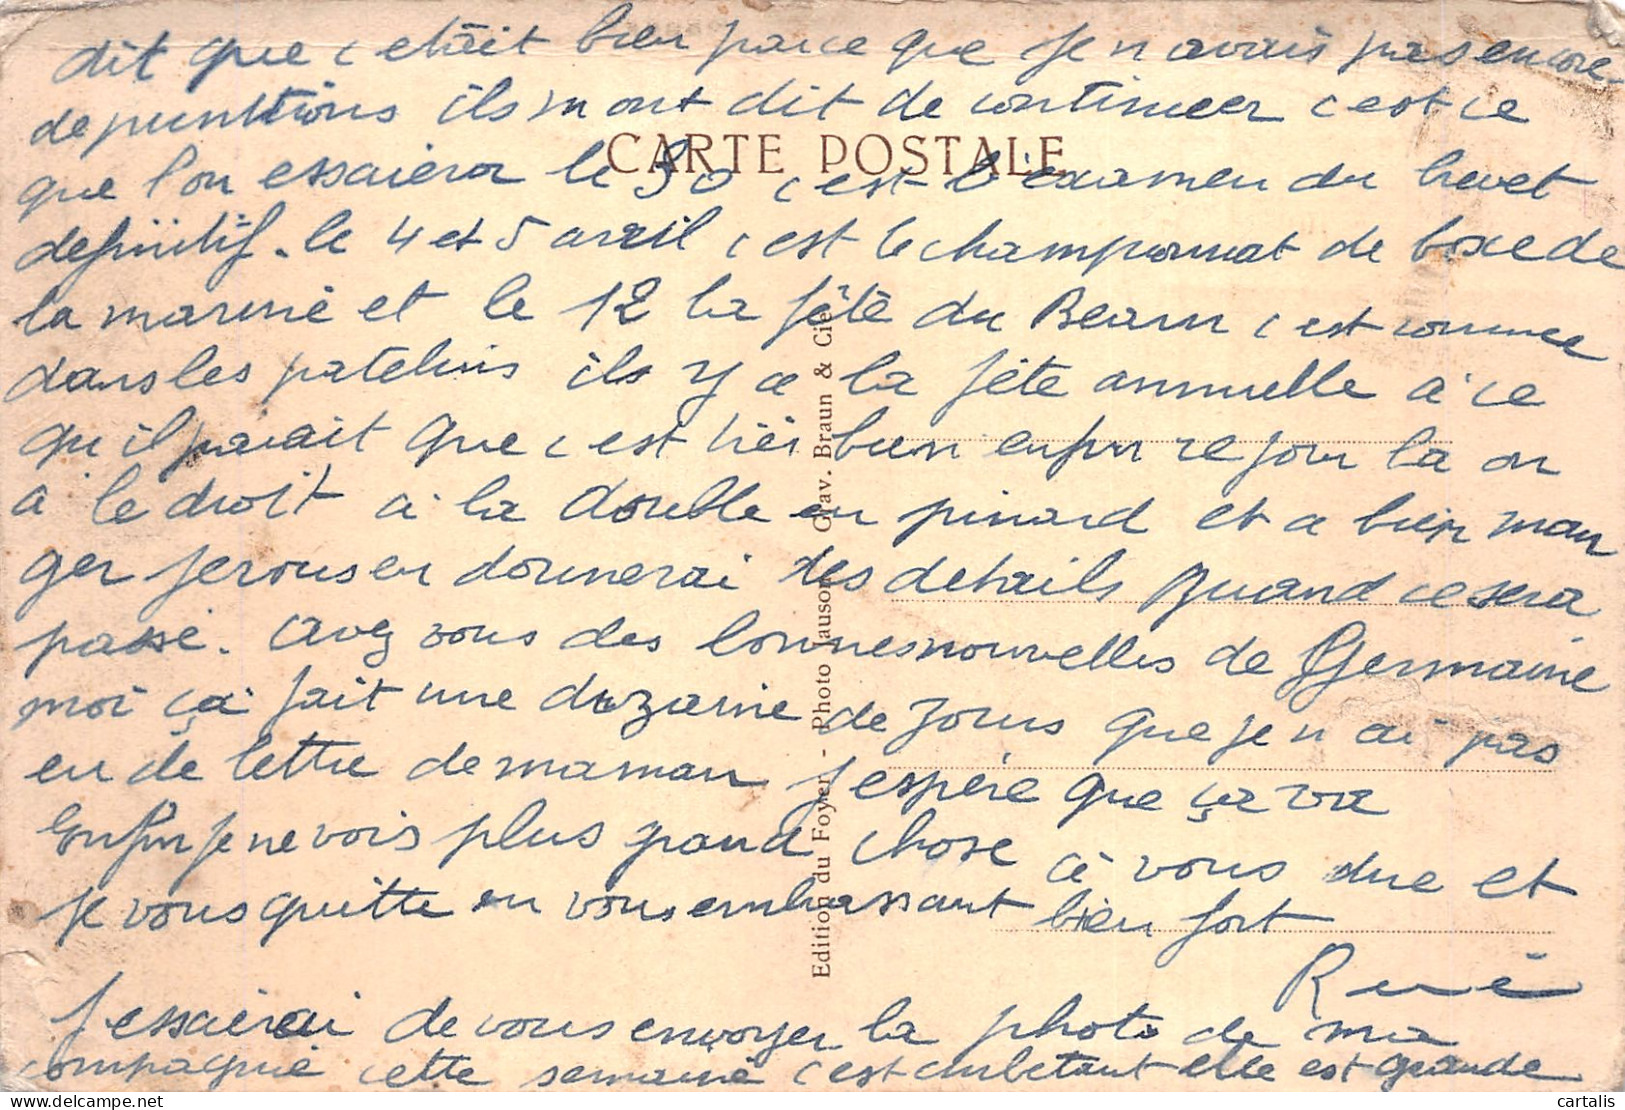 dit que c etait bien parce que je n avais pas encore
de punitions ils m ont dit de continuer c est ce
CARTE POSTALE
que l on essaiera le 30 c est l examen du brevet
definitif. le 4 et 5 avril c est le championnat de boxe de
la marine et le 12 la fête du Bearn c est comme
dans les patelins ils y a la fête annuelle à ce
qu il parait que c est trés bien enfin ce jour la on
à le droit à la double en pinard et a bien man
ger je vous en donnerai des details quand ce sera
passé. avez vous des bonnes nouvelles de Germaine
moi ça fait une dizaine de jours que je n ai pas
eu de lettre de maman j espére que ça va
Enfin je ne vois plus grand chose à vous dire et
je vous quitte en vous embrassant bien fort
René
J essaierai de vous envoyer la photo de ma
compagnie cette semaine c est embetant elle est grande
Edition du Foyer - Photo Lauson Grav. Braun & Cie
cartalis
delcampe.net